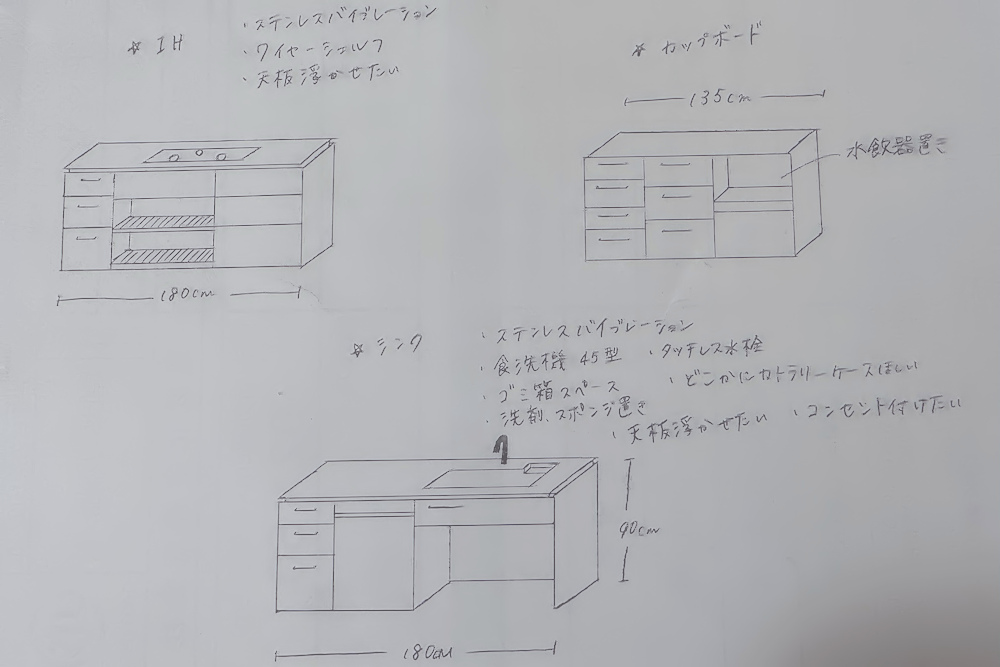 ☆ IH
・ステンレスバイブレーション
・ワイヤーシェルフ
・天板浮かせたい
180cm
☆ カップボード
135cm
水飲器置き
☆ シンク
・ステンレスバイブレーション
・食洗機 45型 ・タッチレス水栓
・ゴミ箱スペース ・どこかにカトラリーケースほしい
・洗剤、スポンジ置き
・天板浮かせたい ・コンセント付けたい
90cm
180cm